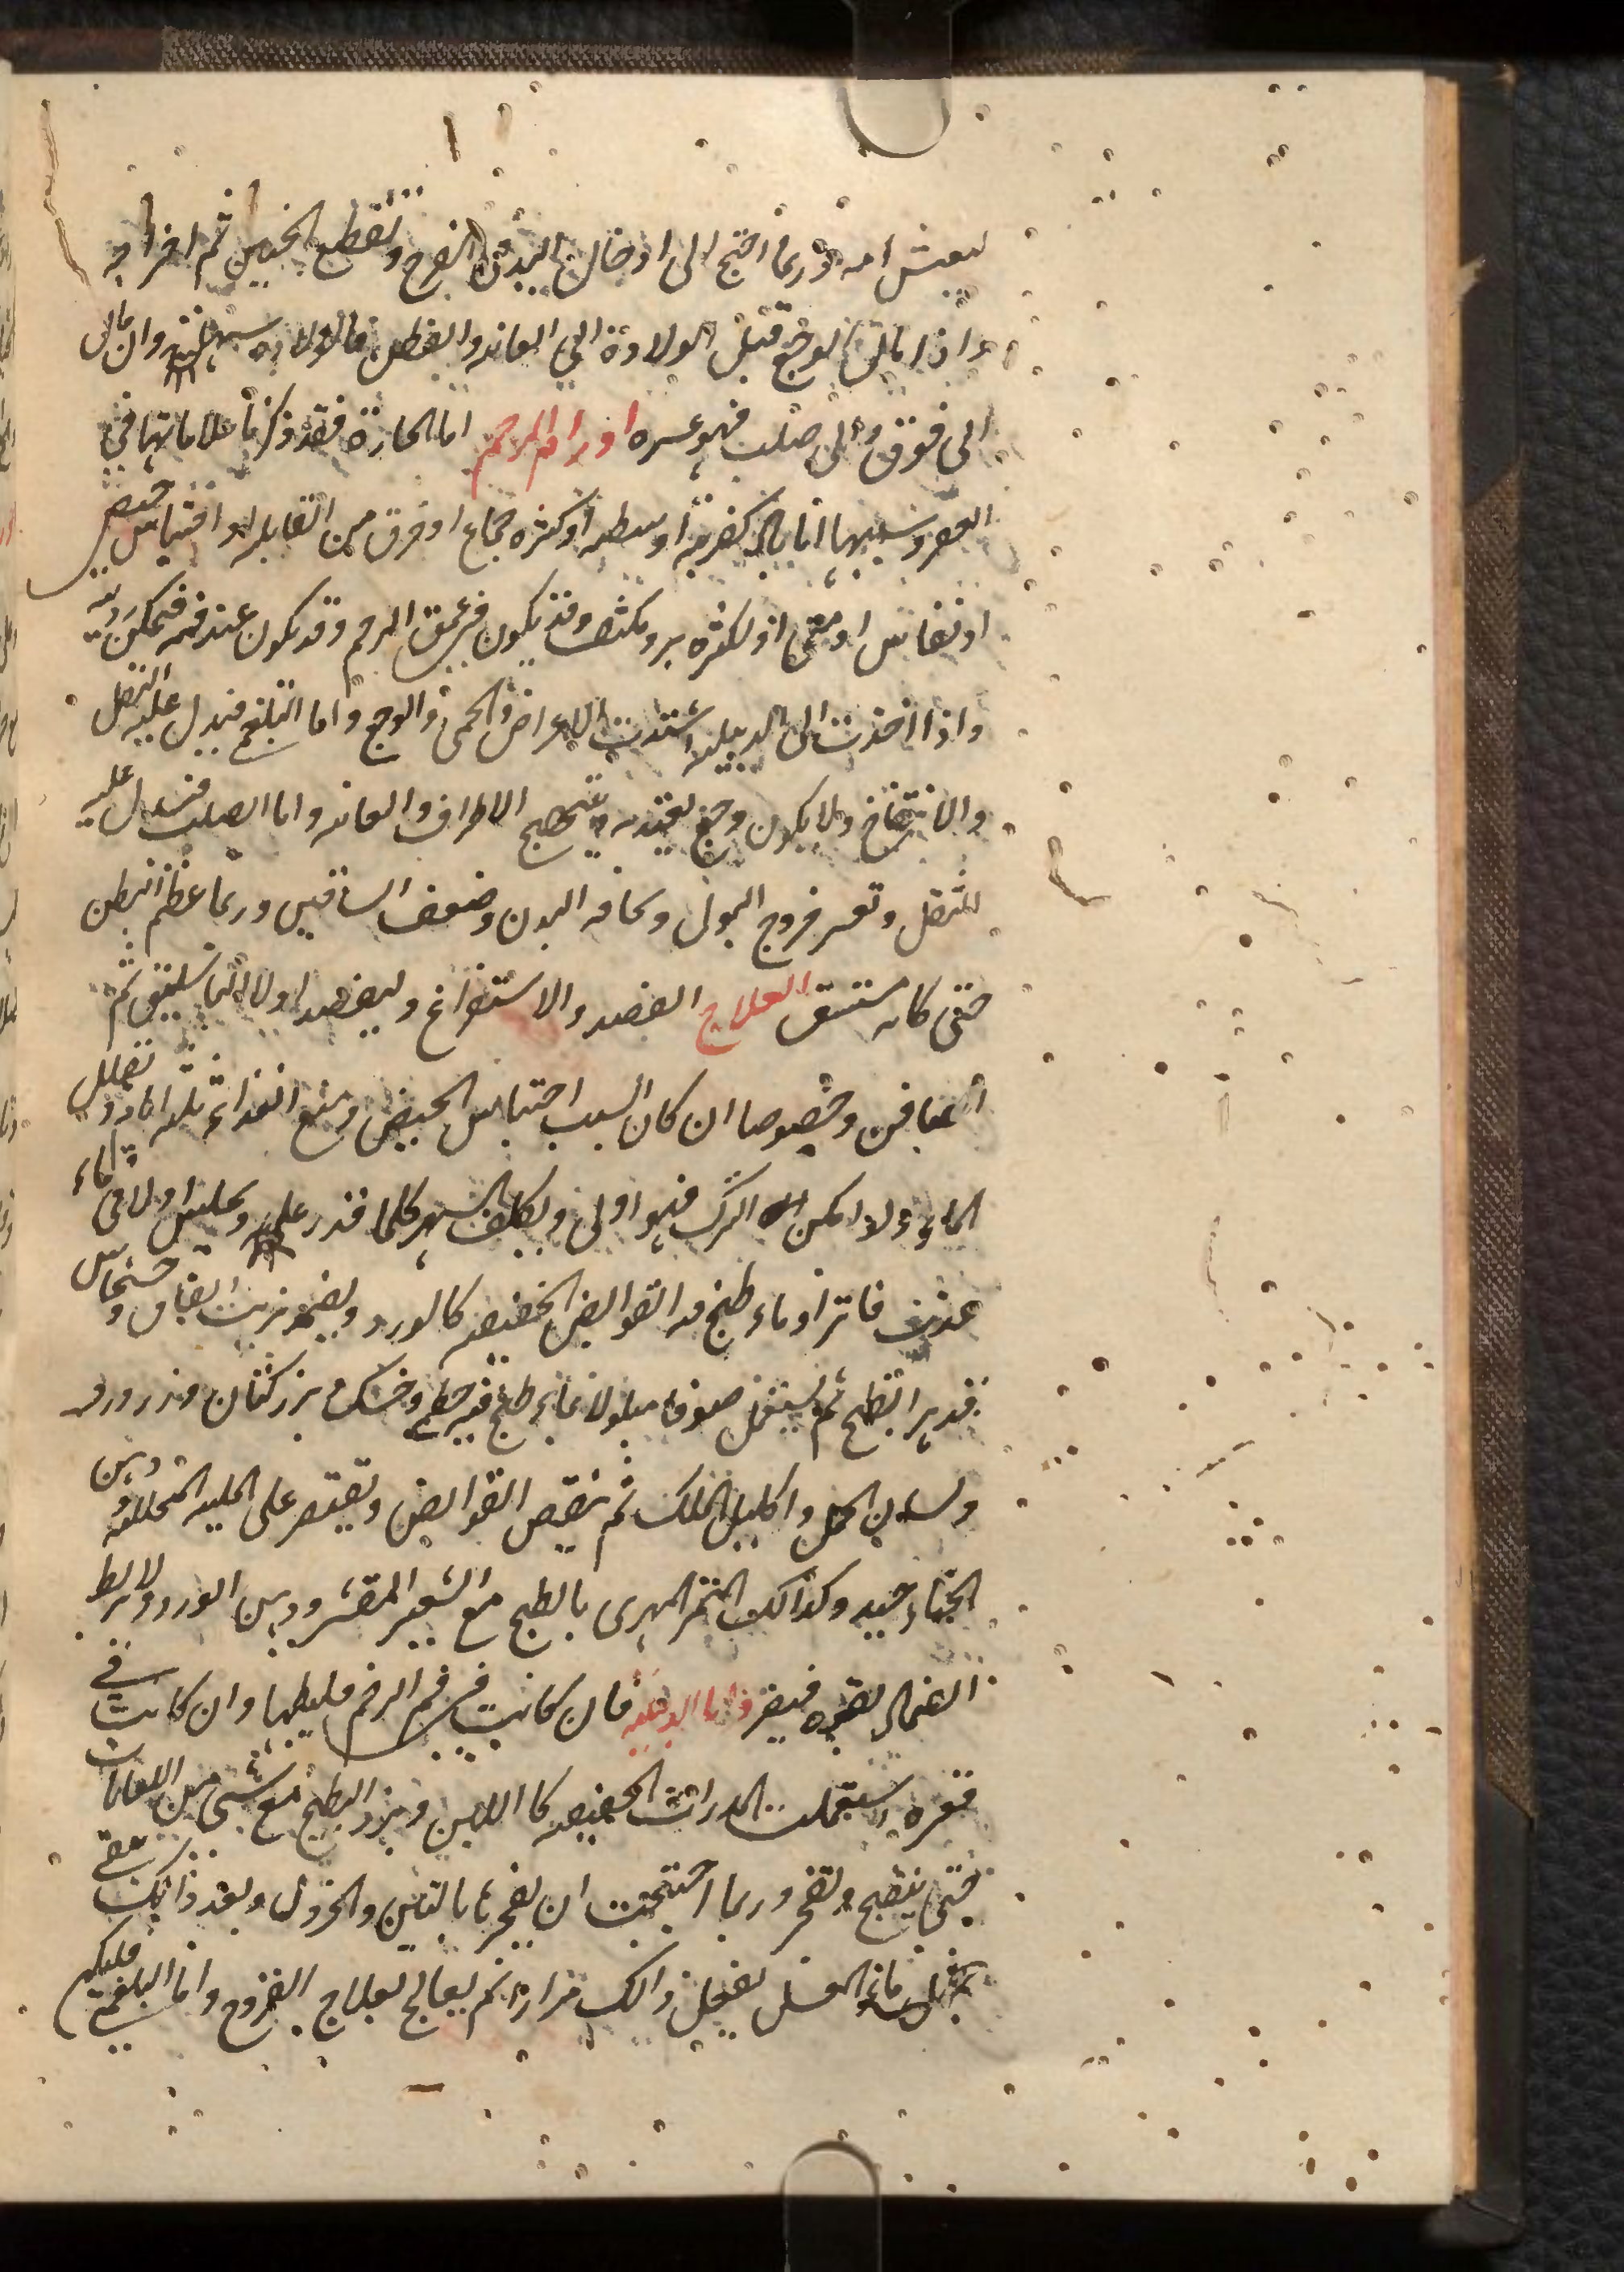 ليعيش امه وربما احتيج الى ادخال اليد في الفرج وتقطيع الجنين ثم اخراجه
واذا مال الوجع قبل الولادة الى العانه والبطن فالولاده سهله وان مال
الى فوق والى صلب فهو عسره اورام الرحم اما الحارة فقد ذكرنا علاماتها في
العصر وسببها اما باد كضربة او سقطه او كثره جماع او خرق من القابله او احتباس حيض
او نفاس او منى او لكثره برد مكثف وقد يكون في عمق الرحم وقد يكون عند فمه فتمكن رويته
واذا اخذت الى الدبيله اشتدت الاعراض والحمى والوجع واما البلغم فيدل عليه الثقل
والانتفاخ ولا يكون وجع يعتد به وتهيج الاطراف والعانه واما الصلب فيدل عليه
الثقل وتعسر خروج البول ونحافه البدن وضعف الساقين وربما عظم البطن
حتى كانه مستسق العلاج الفصد والاستفراغ وليفصد اولا الباسليق ثم
الصافن وخصوصا ان كان السبب احتباس الحيض ومنع الغذاء ثلثه ايام وتقليل
الماء ولو امكن الترك فهو اولى ويكلف السهر كلما قدر عليه وتجلس اولا في ماء
عذب فاتر او ماء طبخ فيه القوابض الخفيفه كالورد ويضمد بزيت انفاق وخشخاش
قد هرا بالطبخ ثم يستعمل صوفا مبلولا بماء طبخ فيه خطمي وخسك وبزركتان وبزر ورد
ولسان الحمل واكليل الملك ثم تنقص القوابض ويقتصر على الملينه المحلله ودهن
الحناء جيد وكذالك التمر المهرى بالطبخ مع الشعير المقشر ودهن الورد ولا يربط
الضماد بقوه فيضر واما الدبيله فان كانت في فم الرحم فليبطها وان كانت في
قعره استعملت المدرات الخفيفه كااللبن وبزر البطيخ مع شئ من اللعابات
حتى ينضج وتنفجر وربما احتجت ان تفجرها بالتين والخردل وبعد ذالك تنقى
بمثل ماء العسل يفعل ذالك مرارا ثم يعالج بعلاج القروح واما البلغمي فليكن